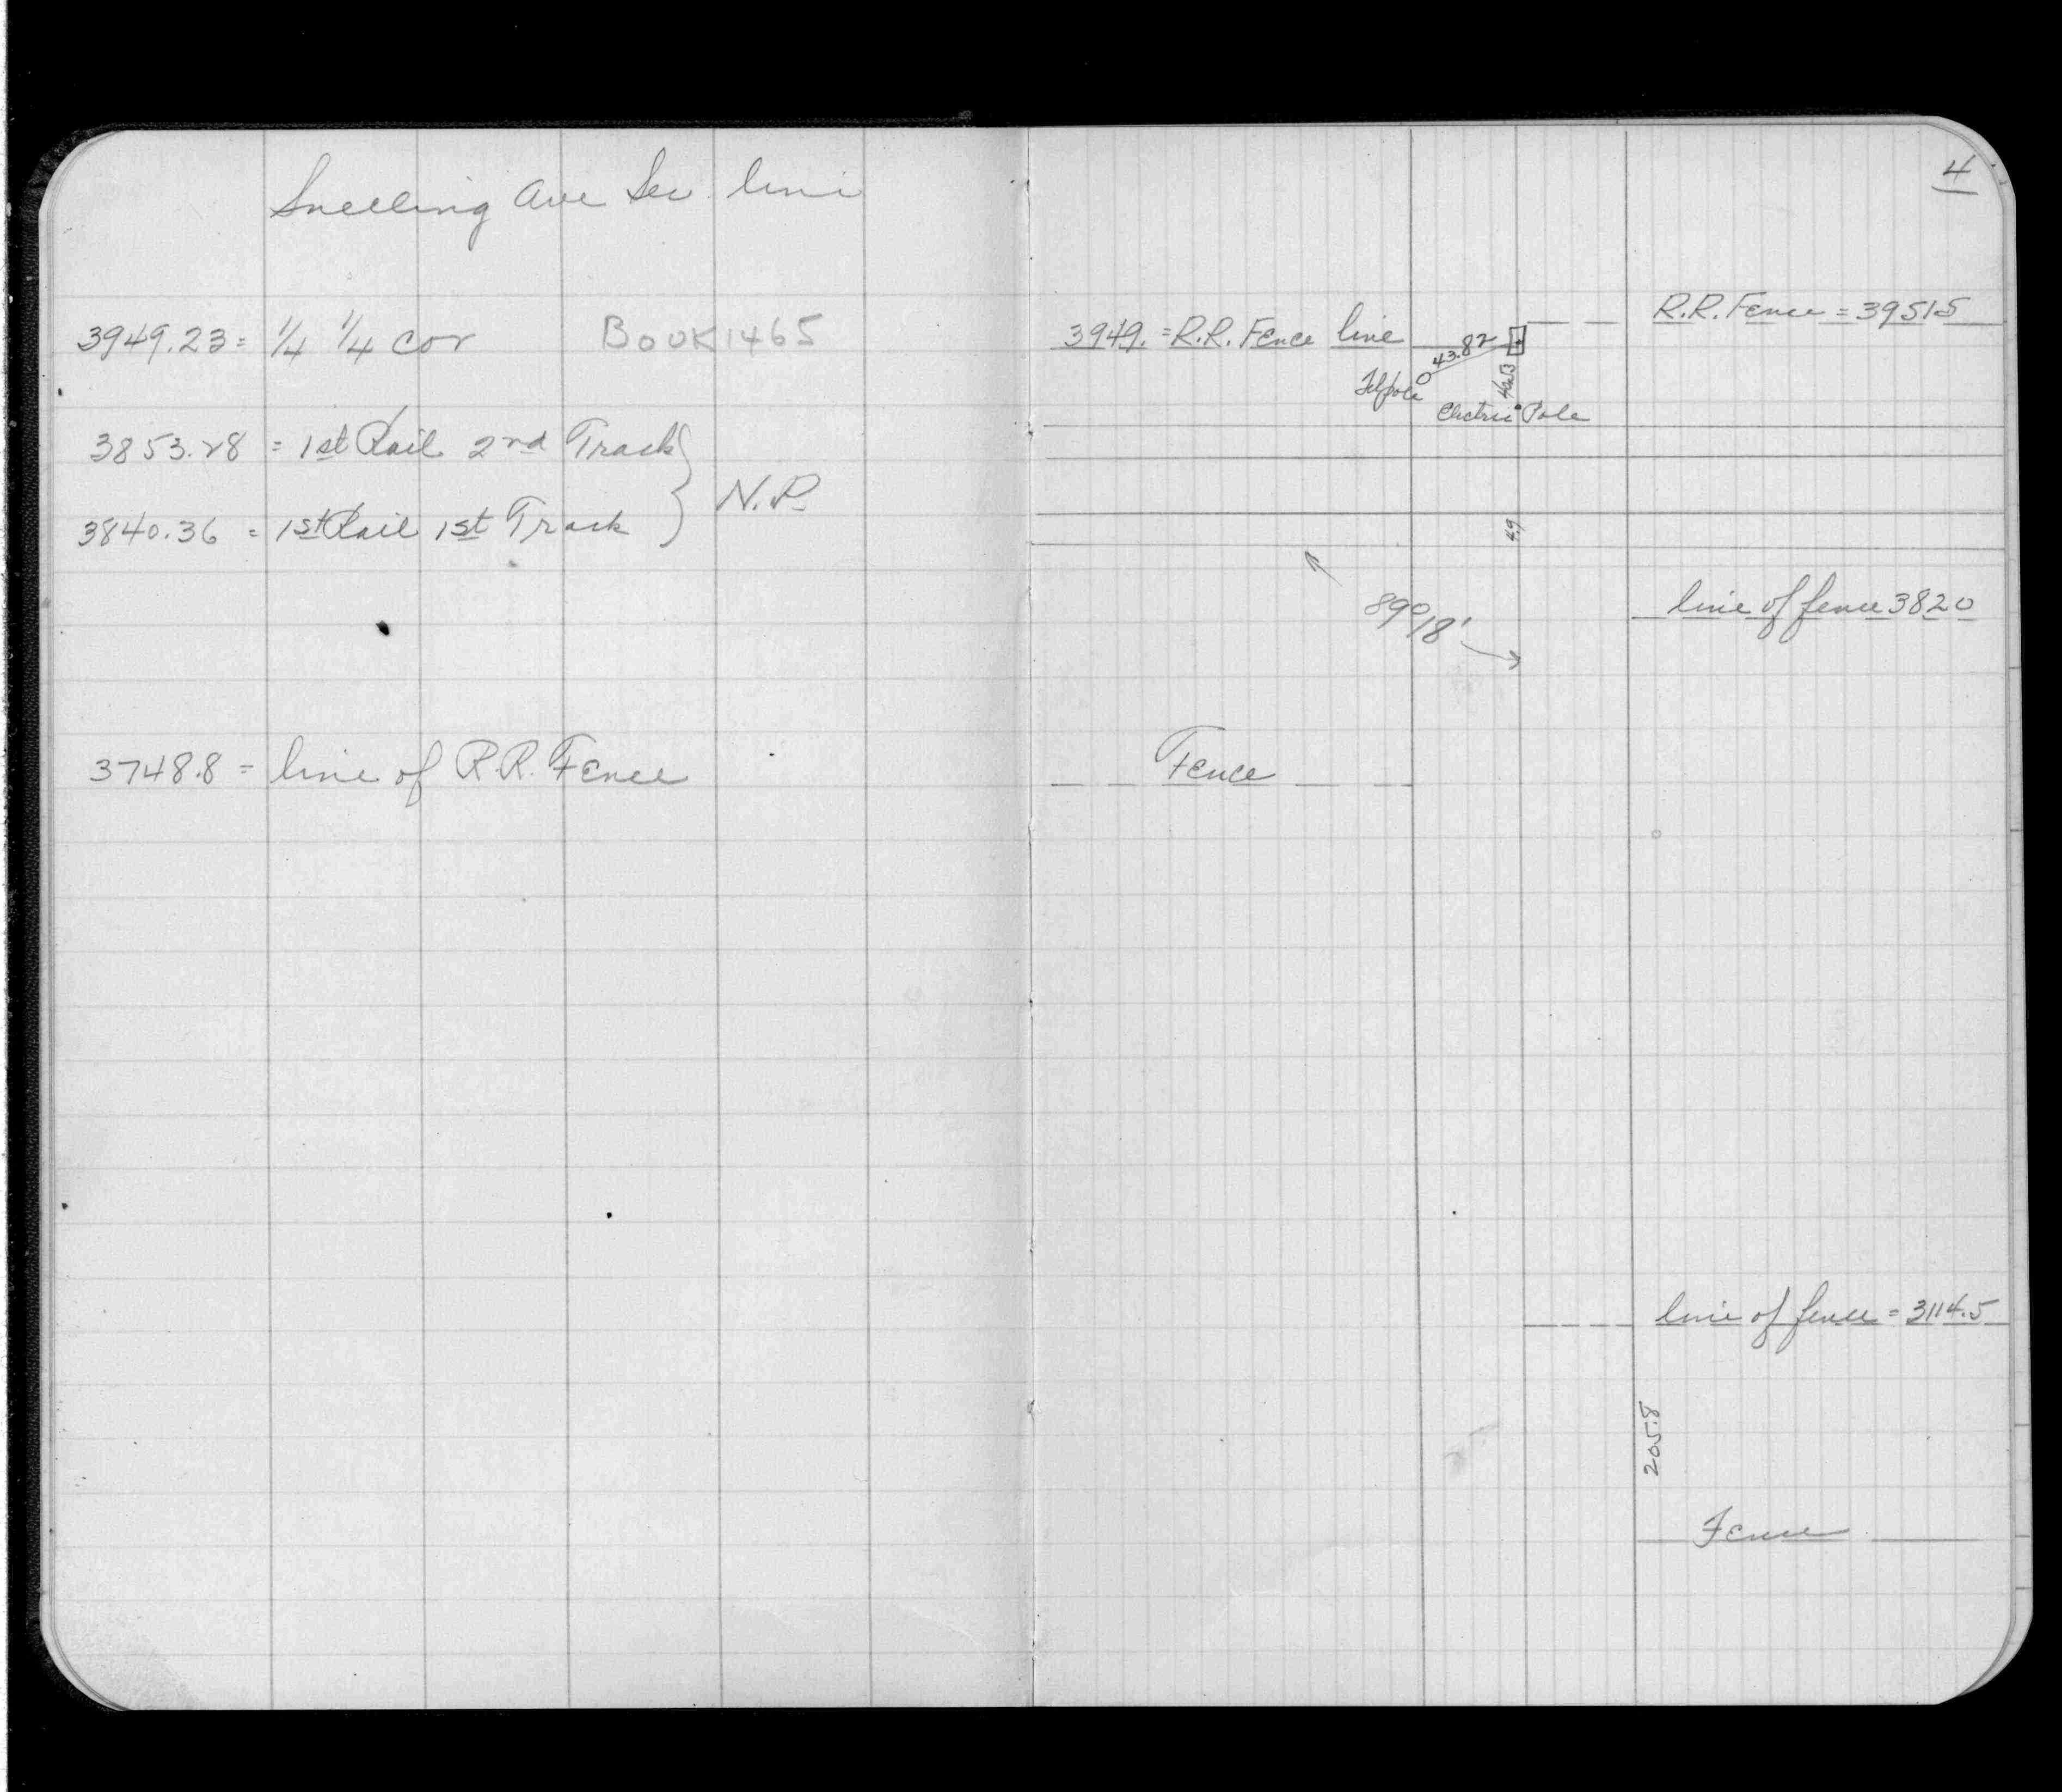 Snelling Ave Sec. line
3949.23 = 1/4 1/4 cor BOOK 1465
3853.28 = 1st Rail 2nd Track
N.P.
3840.36 = 1st Rail 1st Track
3748.8 = line of R.R. Fence
4
R.R. Fence = 3951.5
3949. = R.R. Fence line
43.82
Tel pole
Electric Pole
49
89° 18'
line of fence 3820
Fence
line of fence = 3114.5
205.8
Fence